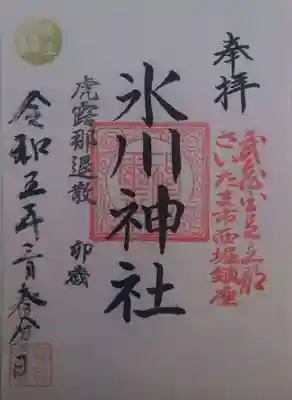 奉拝
武蔵国足立郡
さいたま市西堀鎮座
氷川神社
虎露那退散 卯歳
令和五年三月春分の日